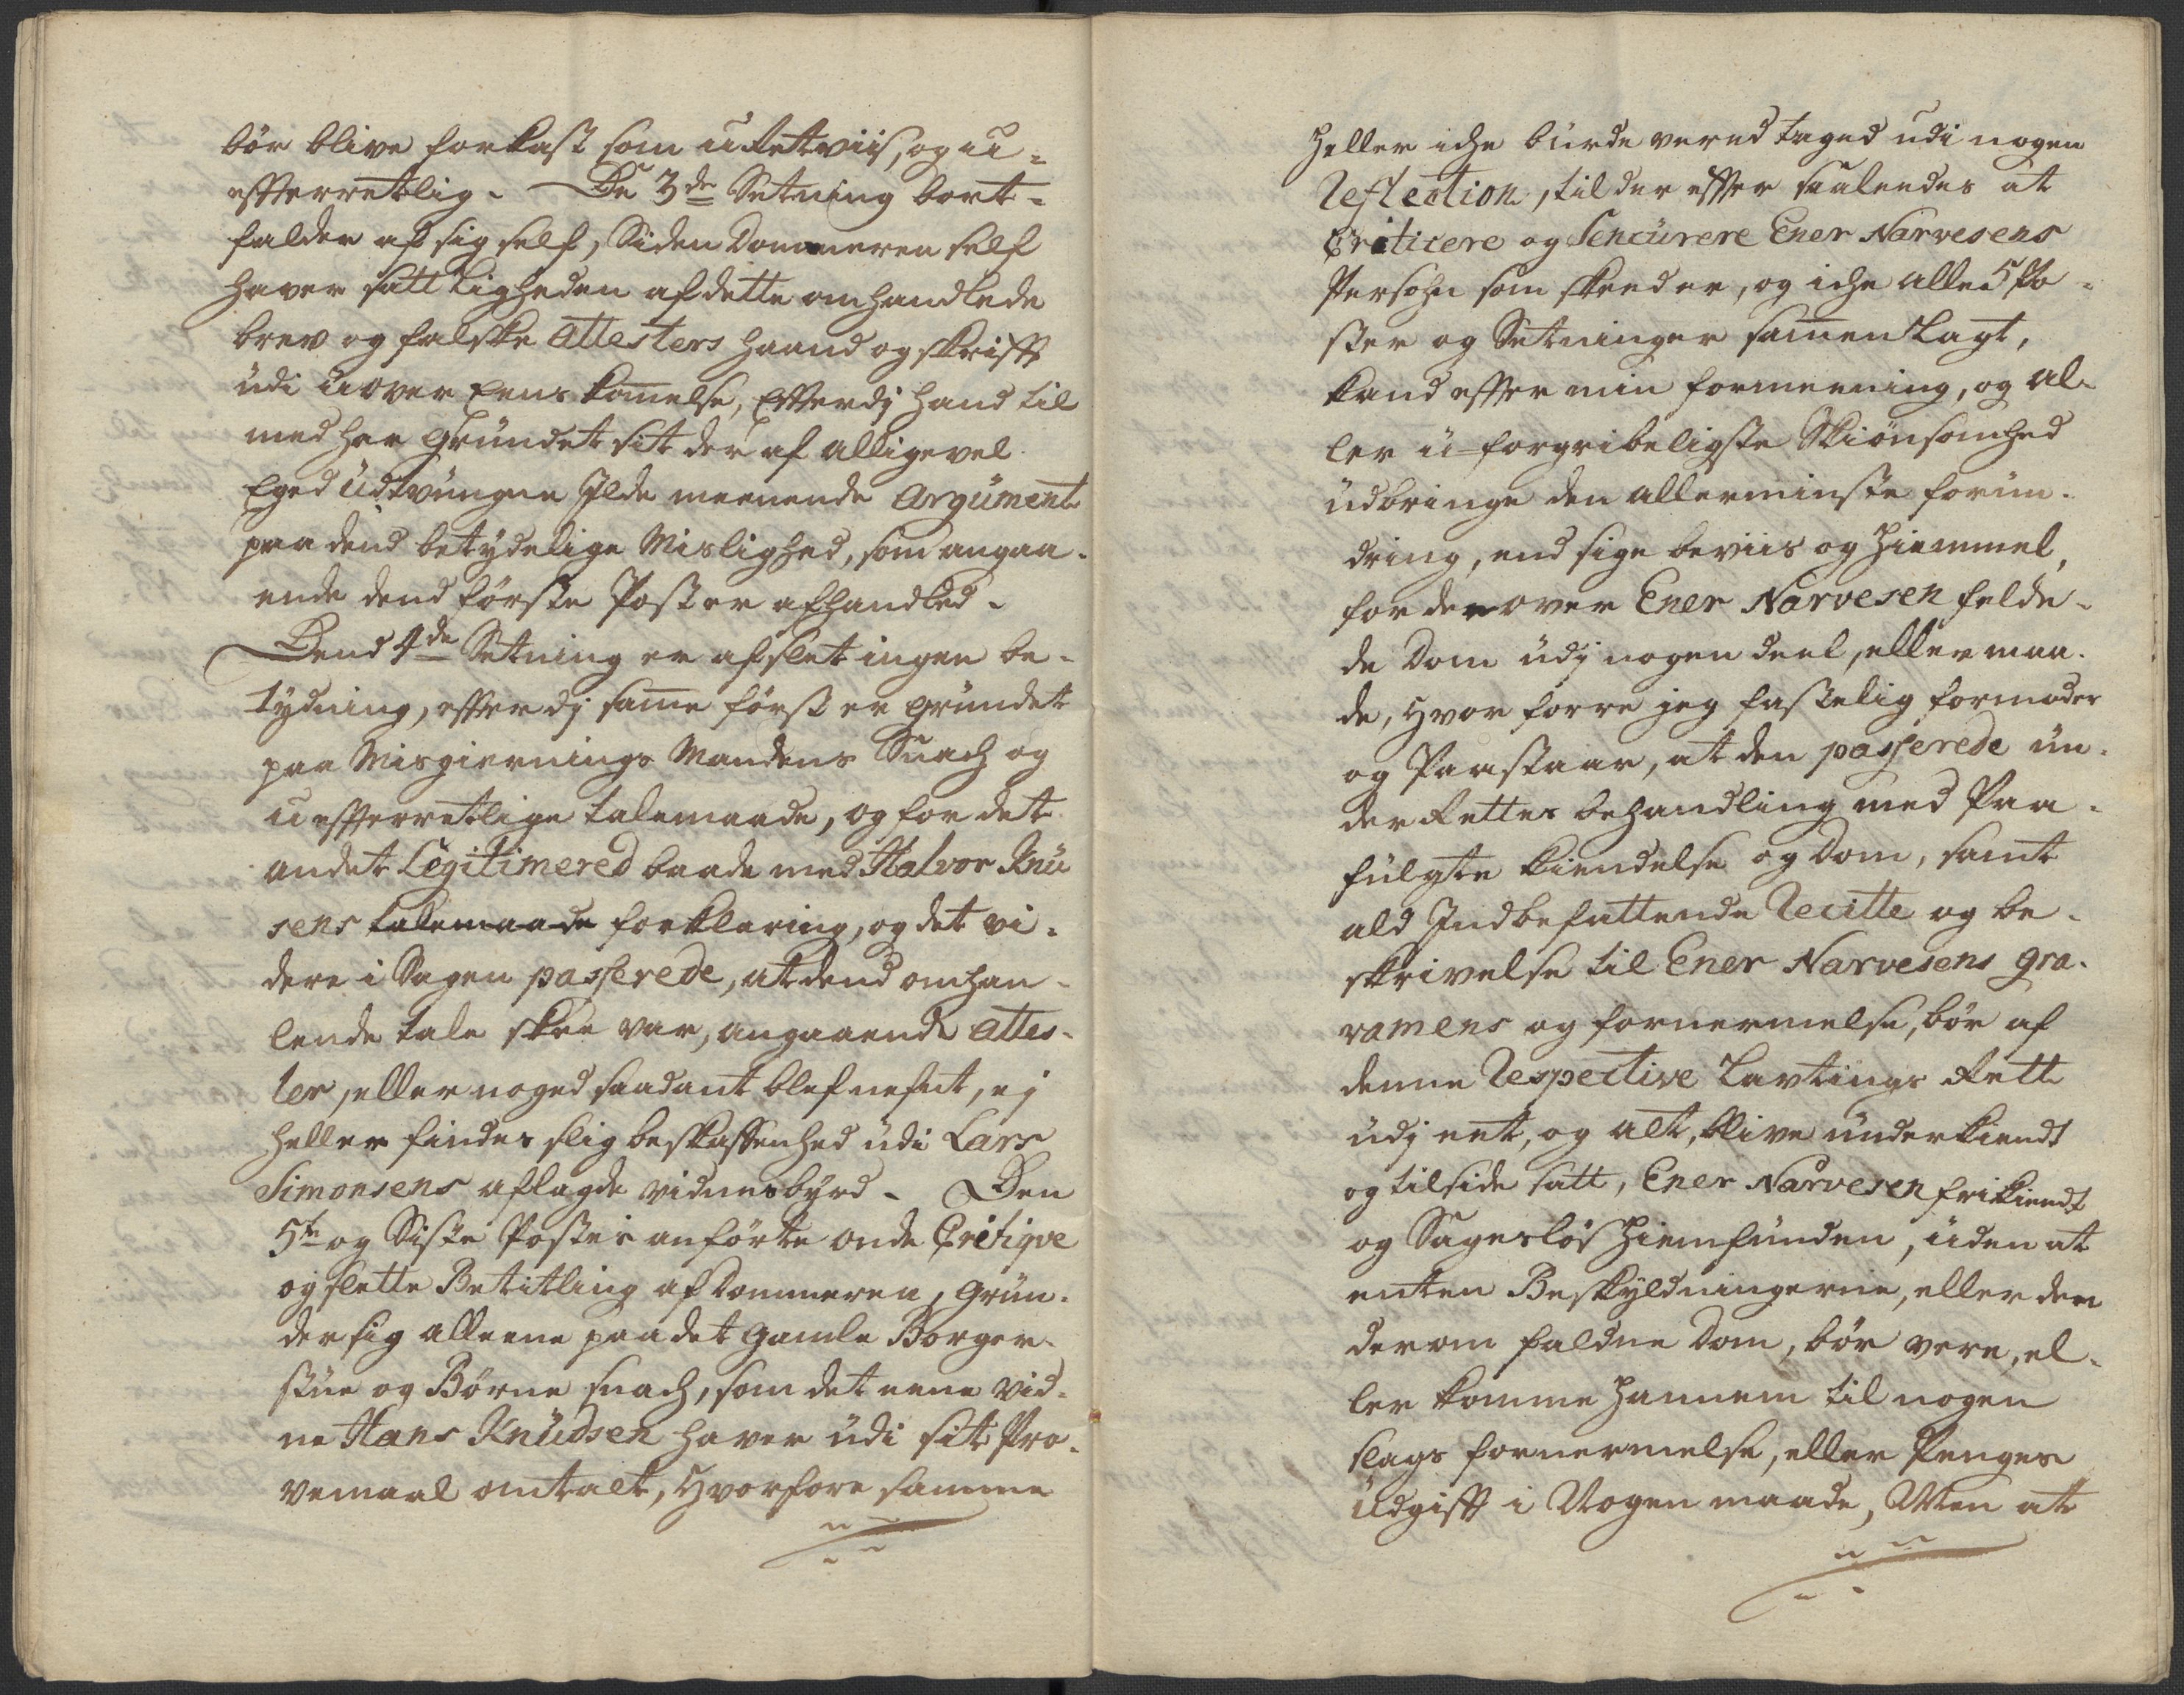 bör blive forkast som uRetviis, og u-
efterretlig. De 3de Setning bort-
falder af sig self, Siden Dommeren self
haver satt Ligheden af dette omhandlede
brev og falske Attesters haand og skrifft
udi uoverEenskom̄else, Efterdj hand til
med har Grundet sit der af alligevel
Eged Udtvungne Ilde meenende Argument
paa dend betydelige Mislighed, som angaa-
ende dend förste Post er afhandled.
Dend 4de Setning er af slet ingen be-
tydning, efterdj sam̄e först er grundet
paa Misgiernings Mandens Snach og
uefterretlige talemaade, og for det
andet Legitimered baade med Halvor Knu
sens talemaade forklaring, og det vi-
dere i Sagen passerede, at dend omhan-
lende tale skee var, angaaende Attes-
ter, eller noged saadant blef nefnt, ej
heller findes slig beskaffenhed udi Lars
Simonsens aflagde vidnesbyrd. Den
5te og Siste Postes anförte onde Critiqve
og slette Betitling af Dommeren, Grun-
der sig alleene paa det gamle Borger-
stue og Börne snach, som det eene Vid-
ne Hans Knudsen haver udi sit Pro-
vemaal omtalt, hvorfore samme
heller iche burde vered taged udi nogen
Reflection, til der efter saaleedes at
Criticere og Sencurere Ener Narvesens
Persohn som skeed er, og iche alle 5 Po-
ster og Setninger sam̄en Lagt,
kand efter min formeening, og al-
ler u-forgribeligste Skiönsomhed
udbringe den allerminste forun-
dring, end sige beviis og Hiemmel,
for der over Ener Narvesen felde-
de Dom udj nogen deel, eller maa-
de, hvor forre jeg fastelig formoder
og Paastaar, at den passerede un-
der Rettes behandling med Paa-
fulgte kiendelse og Dom, samt
ald Indbefattende Recitte og be-
skrivelse til Ener Narvesens gra-
vamens og fornermelse, bör af
denne Respective Lavtings Rett
udj eet, og alt, blive underkiendt
og tilside satt, Ener Narvesen frikiendt
og Sageslös Hiemfunden, uden at
enten Beskyldningerne, eller den
derom faldne Dom, bör vere, el-
ler komme hannem til nogen
slags fornermelse, eller Penges
Udgifft i Nogen maade, Men at